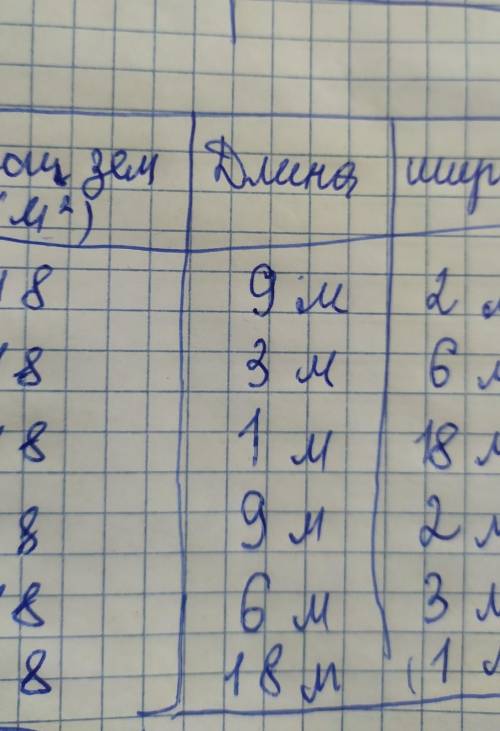 ощ зем Длина шир
(м²)
18 9 м 2 м
18 3 м 6 м
18 1 м 18 м
8 9 м 2 м
18 6 м 3 м
8 18 м 1 м